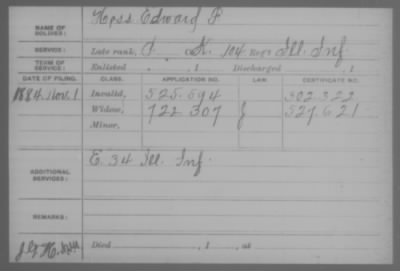 NAME OF SOLDIER: Hess Edward P
SERVICE: Late rank, P. K. 104 Reg't Ill. Inf.
TERM OF SERVICE: Enlisted , 1 Discharged , 1
DATE OF FILING. CLASS. APPLICATION NO. LAW. CERTIFICATE NO.
1884. Nov. 1 Invalid, 525.594 302.322
Widow, 722 307 527.621
Minor,
ADDITIONAL SERVICES: E. 34 Ill. Inf.
REMARKS:
Died , 1 , at